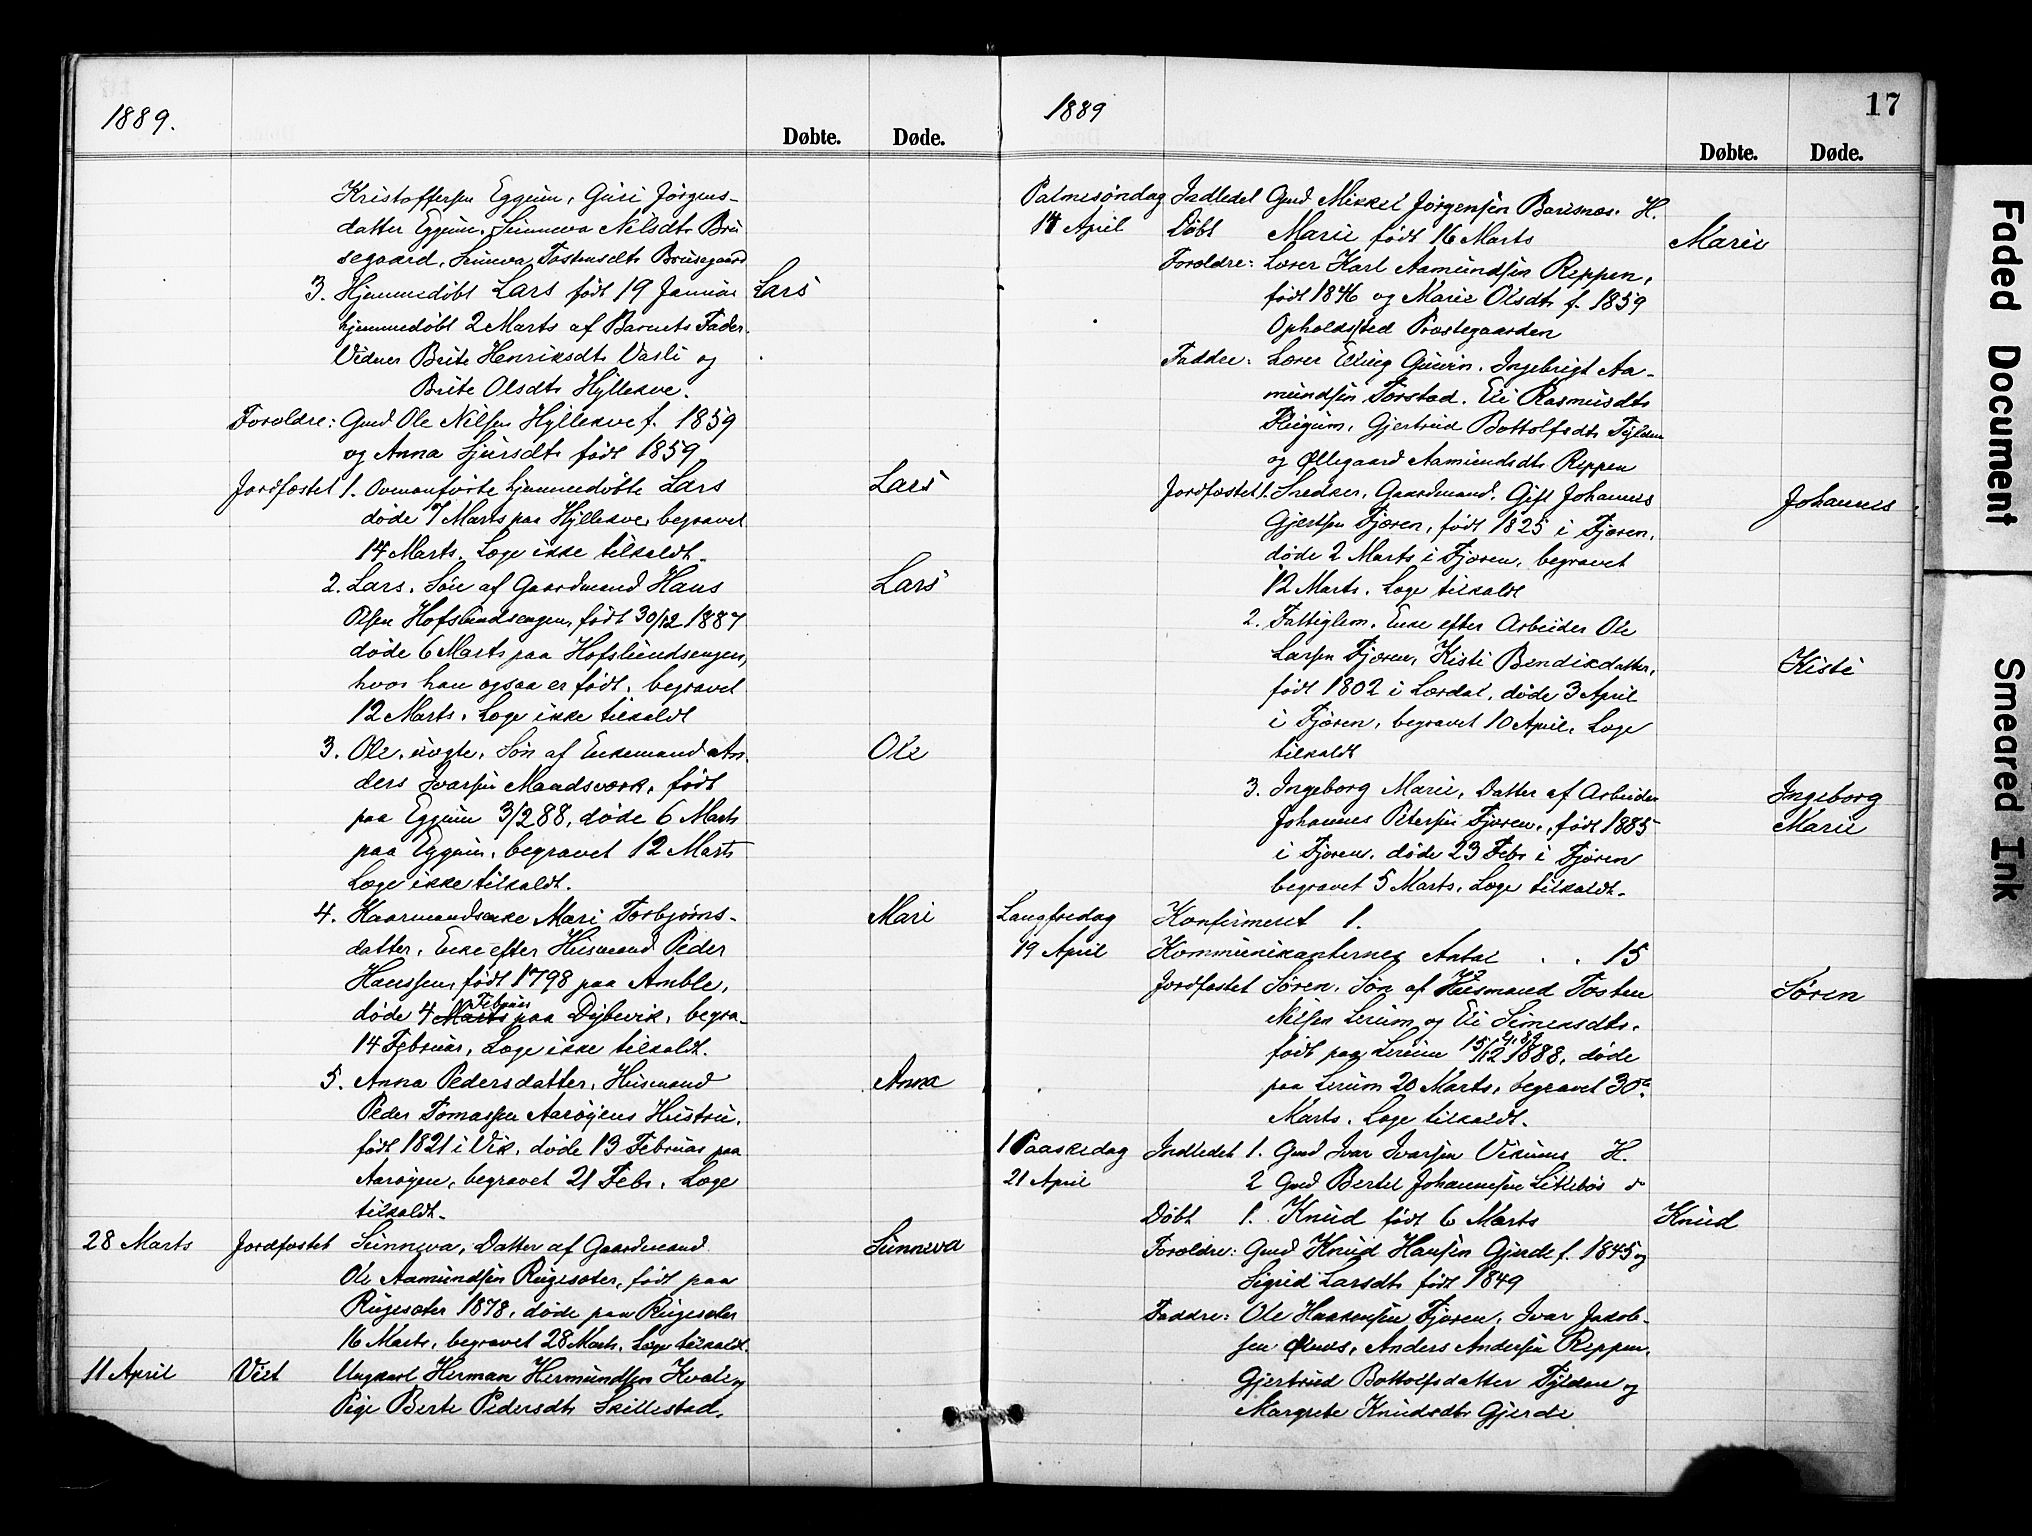 1889.
Døbte. Døde.
Kristoffersen Eggum, Guri Jørgens-
datter Eggum, Sunneva Nilsdtr Bru
segaard, Sunneva Tostensdtr Brusegaard
3. Hjemmedøbt Lars født 19 Januar Lars
hjemmedøbt 2 Marts af Barnets Fader.
Vidner Brite Henriksdtr Vasli og
Brite Olsdtr Hyllekve.
Forældre: Gmd Ole Nilsen Hyllekve f. 1859
og Anna Sjursdtr født 1859
Jordfæstet 1. Ovenanførte hjemmedøbte Lars Lars
døde 7 Marts paa Hyllekve, begravet
14 Marts. Læge ikke tilkaldt.
2. Lars, Søn af Gaardmand Hans Lars
Olsen Hofslundsengen, født 30/12 1887
døde 6 Marts paa Hofslundsengen,
hvor han ogsaa er født, begravet
12 Marts. Læge ikke tilkaldt
3. Ole, uægte, Søn af Enkemand An- Ole
ders Ivarsen Maadsværk, født
paa Eggum 3/2 88, døde 6 Marts
paa Eggum, begravet 12 Marts
Læge ikke tilkaldt.
4. Kaarmandsenke Mari Torbjørns- Mari
datter, Enke efter Husmand Peder
Hanssen, født 1798 paa Amble,
Februar
døde 4 Marts paa Dybevik, begra-
14 Februar, Læge ikke tilkaldt.
5. Anna Pedersdatter, Husmand Anna
Peder Tomassen Aarøyens Hustru,
født 1821 i Vik, døde 13 Februar paa
Aarøyen, begravet 21 Febr. Læge
tilkaldt.
28 Marts Jordfæstet Sunneva, Datter af Gaardmand Sunneva
Ole Aamundsen Rugesæter, født paa
Rugesæter 1878, døde paa Rugesæter
16 Marts, begravet 28 Marts. Læge tilkaldt.
11 April Viet Ungkarl Herman Hermundsen Kvale og
Pige Berte Pedersdtr Skillestad.
1889 17
Døbte. Døde.
Palmesøndag Indledet Gmd Mikkel Jørgensen Barsnæs. H.
14 April Døbt Marie født 16 Marts Marie
Forældre: Lærer Karl Aamundsen Reppen,
født 1846 og Marie Olsdtr f. 1859
Opholdssted Præstegaarden
Faddre: Lærer Elling Gurvin, Ingebrigt Aa-
mundsen Torstad, Eli Rasmusdtr
Flugum, Gjertrud Bottolfsdtr Tylden
og Øllegaard Aamundsdtr Reppen
Jordfæstet 1. Snedker, Gaardmand, Gift Johannes Johannes
Gjertsen Fjæren, født 1825 i Fjæren,
døde 2 Marts i Fjæren, begravet
12 Marts. Læge tilkaldt
2. Fattiglem, Enke efter Arbeider Ole
Larsen Fjæren, Kisti Bendiksdatter, Kisti
født 1802 i Lærdal, døde 3 April
i Fjæren, begravet 10 April, Læge
tilkaldt
3. Ingeborg Marie, Datter af Arbeider Ingeborg
Johannes Petersen Fjæren, født 1885 Marie
i Fjæren, døde 23 Febr i Fjæren
begravet 5 Marts, Læge tilkaldt.
Langfredag Konfirmeret 1.
19 April Kommunikanternes Antal . . 15
Jordfæstet Søren, Søn af Husmand Tosten Søren
Nilsen Lerum og Eli Simensdtr.
født paa Lerum 15/12 1888, døde
paa Lerum 20 Marts, begravet 30te
Marts. Læge tilkaldt.
1 Paaskedag Indledet 1. Gmd Ivar Ivarsen Vikums H.
21 April 2 Gmd Bertel Johannesen Litlebøs do
Døbt 1. Knud født 6 Marts Knud
Forældre: Gmd Knud Hansen Gjerde f. 1845 og
Sigrid Larsdtr født 1849
Faddre: Ole Haakensen Fjæren, Ivar Jakob-
sen Ølnes, Anders Andersen Reppen,
Gjertrud Bottolfsdatter Tylden og
Margrete Knudsdtr Gjerde
Faded Document
Smeared Ink